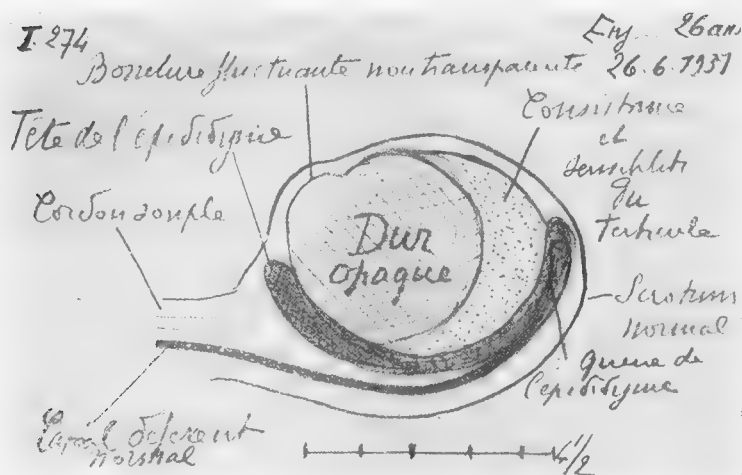 I. 274
26 ans
26.6.1931
Bosselure fluctuante non transparente
Tête de l'épididyme
Consistance
et
sensibilité
du
testicule
Cordon souple
Dur
opaque
Scrotum
normal
queue de
l'épididyme
Canal déférent
normal
4 1/2